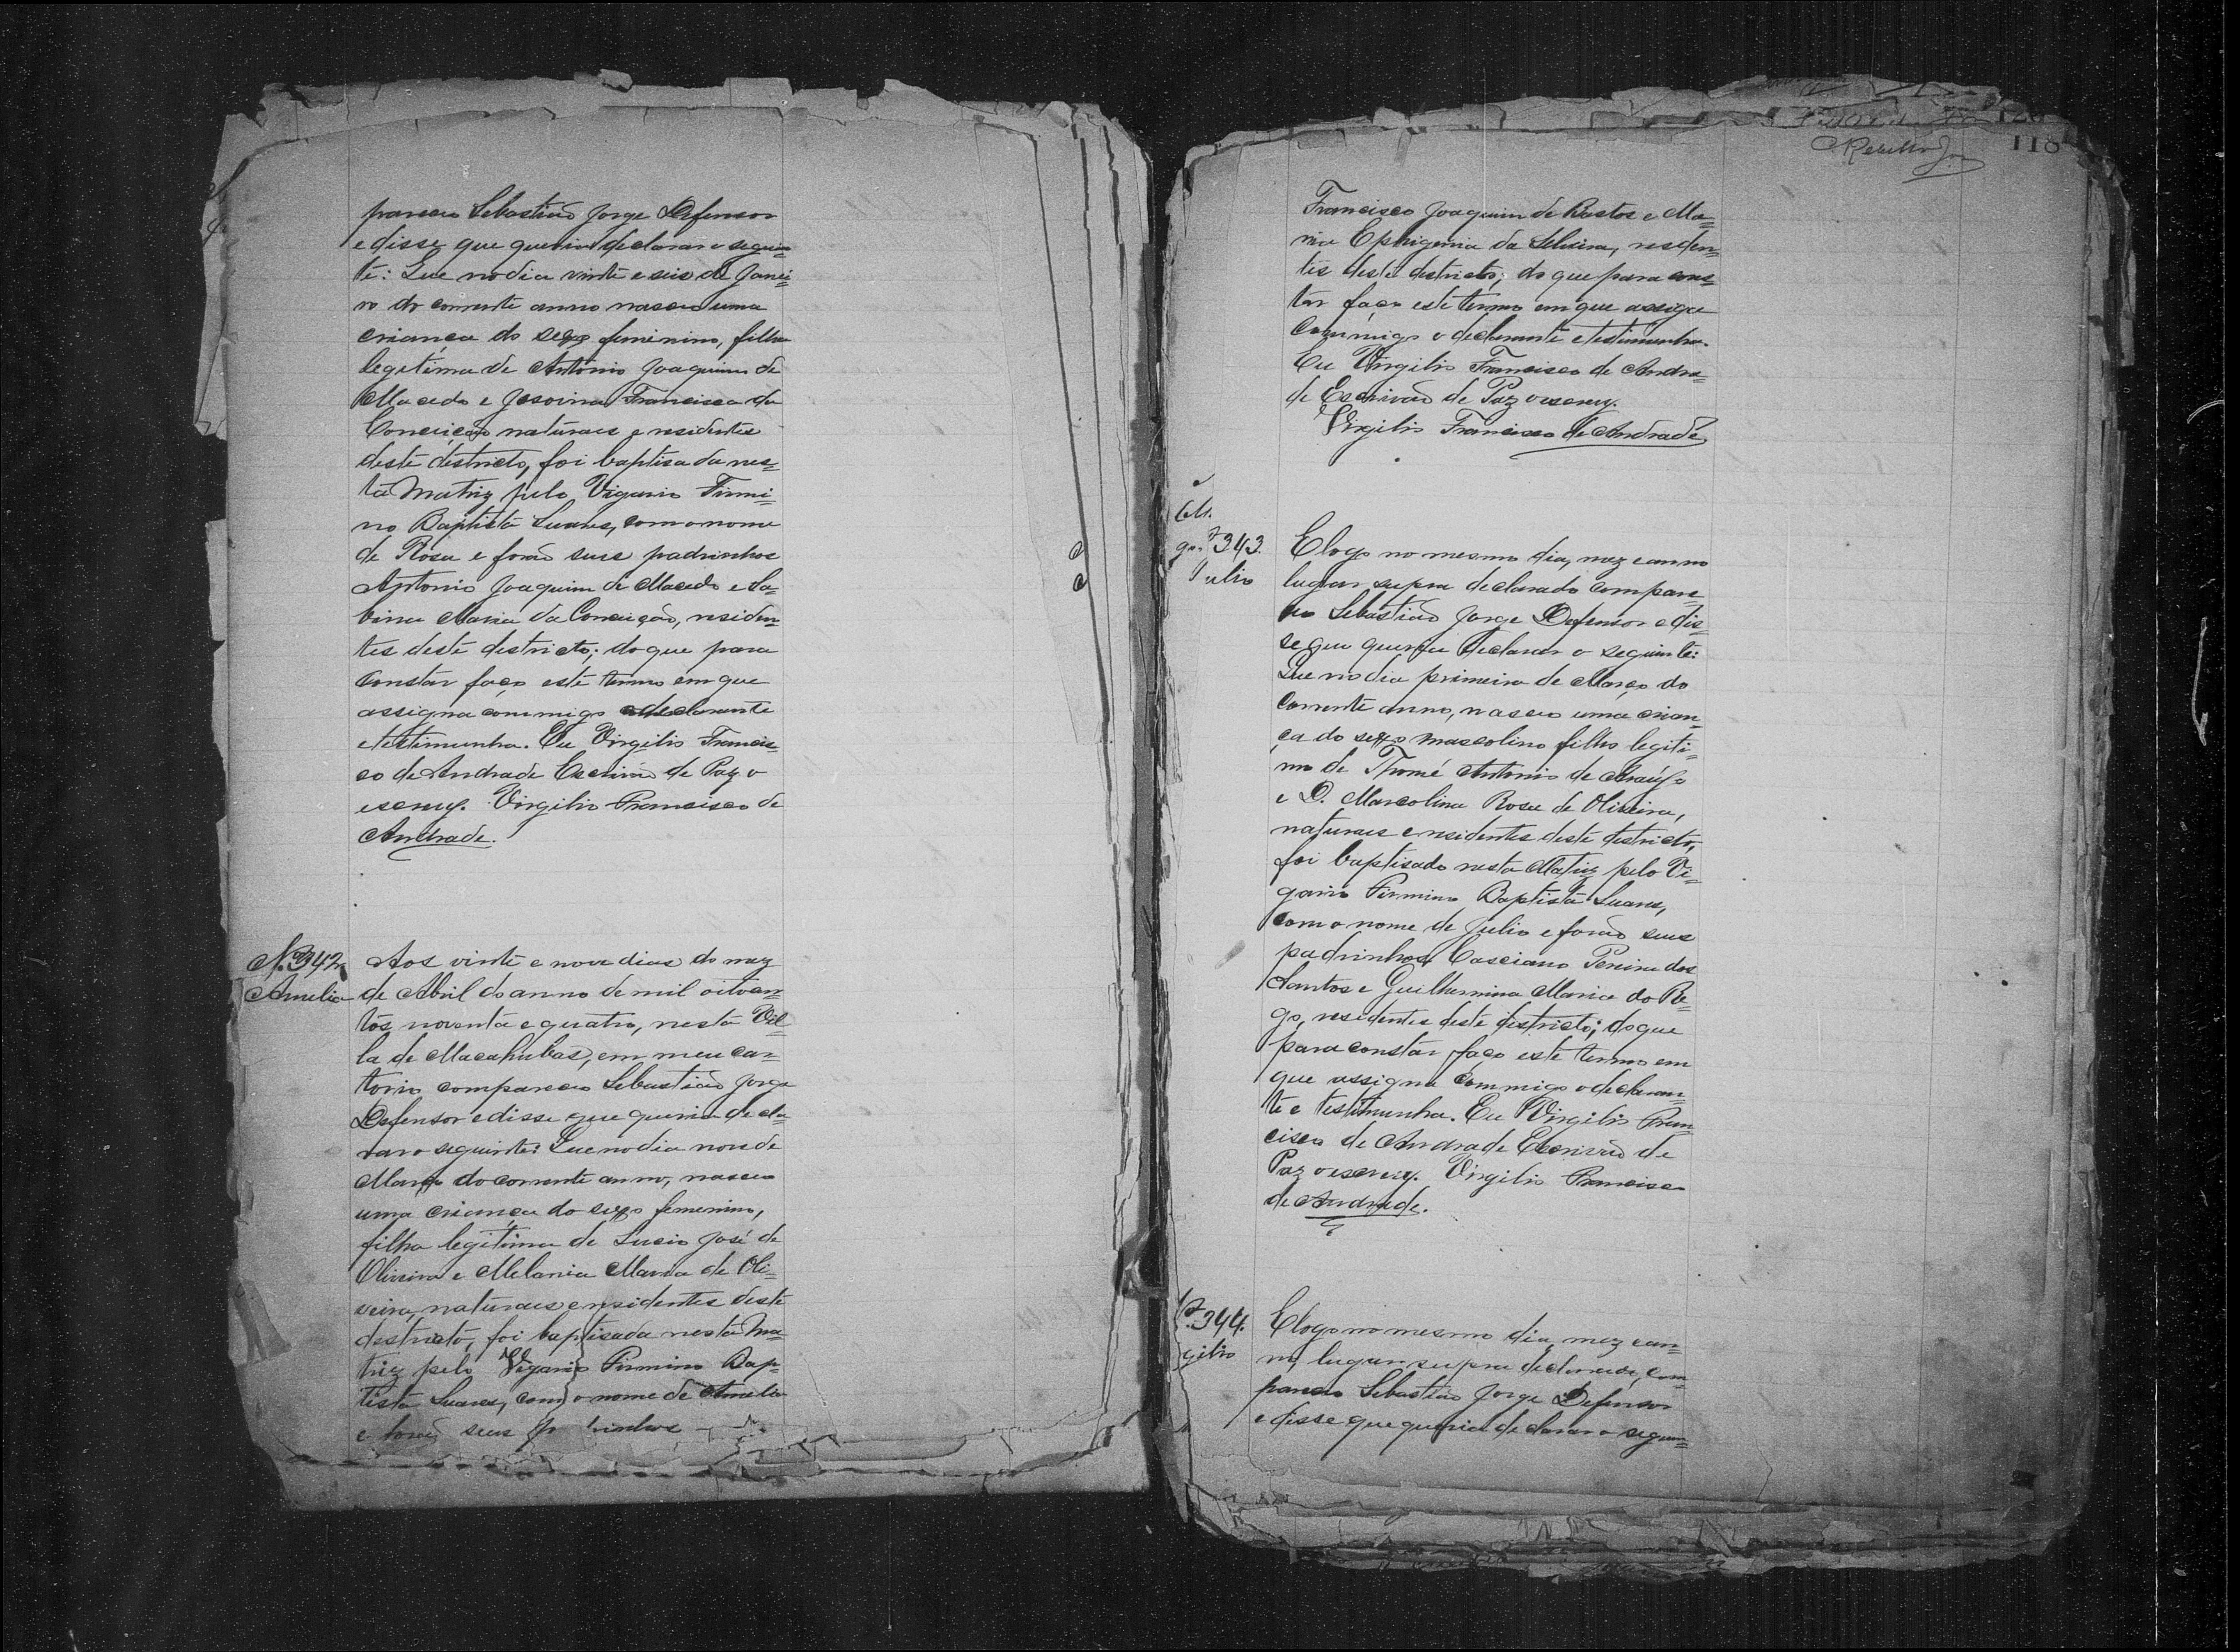 pareceu Sebastião Jorge Defensor
e disse que queria declarar o seguin=
te: Que no dia vinte e seis de Janei=
ro do corrente anno nasceu uma
criança do sexo feminino, filha
legitima de Antonio Joaquim de
Macedo e Jesoina Francisca da
Conceição naturaes e residentes
deste destricto, foi baptisada nes=
ta Matriz pelo Vigario Firmi=
no Baptista Soares, com o nome
de Rosa e forão seus padrinhos
Antonio Joaquim de Macedo e Sa=
bina Maria da Conceição, residen=
tes deste destricto; do que para
constar faço este termo em que
assigna commigo o declarante
e testimunha. Eu Virgilio Francis=
co de Andrade Escrivão de Paz o
escrevy. Virgilio Francisco de
Andrade.
N. 342
Amelia
Aos vinte e nove dias do mez
de Abril do anno de mil oitocen=
tos noventa e quatro, nesta Vil=
la de Macahubas, em meu car=
torio compareceu Sebastião Jorge
Defensor e disse que queria decla
rar o seguinte: Que no dia nove de
Março do corrente anno, nasceu
uma criança do sexo feminino,
filha legitima de Lucio José de
Oliveira e Melania Maria de Oli=
veira, naturaes e residentes deste
destricto, foi baptisada nesta Ma=
triz pelo Vigario Firmino Bap=
tista Soares, com o nome de Amelia
e forão seus
118
Francisco Joaquim de Bastos e Ma=
ria Ephigenia da Silveira, residen=
tes deste destricto; do que para cons=
tar faço este termo em que assigna
commigo o declarante e testimunha.
Eu Virgilio Francisco de Andra=
de Escrivão de Paz o escrevy.
Virgilio Francisco de Andrade
343
Julio
E logo no mesmo dia, mez e anno
lugar supra declarado compare=
ceu Sebastião Jorge Defensor e dis=
se que queria declarar o seguinte:
Que no dia primeiro de Março do
corrente anno, nasceu uma crian=
ça do sexo mascolino filho legiti=
mo de Thomé Antonio de Araújo
e D. Marcolina Rosa de Oliveira,
naturaes e residentes deste destricto,
foi baptisado nesta Matriz pelo Vi=
gario Firmino Baptista Soares,
com o nome de Julio e forão seus
padrinhos Casciano Pereira dos
Santos e Guilhermina Maria do Re=
go, residentes deste destricto; do que
para constar faço este termo em
que assigna commigo o declaran=
te e testimunha. Eu Virgilio Fran=
cisco de Andrade Escrivão de
Paz o escrevy. Virgilio Francisco
de Andrade.
344.
E logo no mesmo dia, mez e an=
no, lugar supra declarado, com=
pareceu Sebastião Jorge Defensor
e disse que queria declarar o seguin=